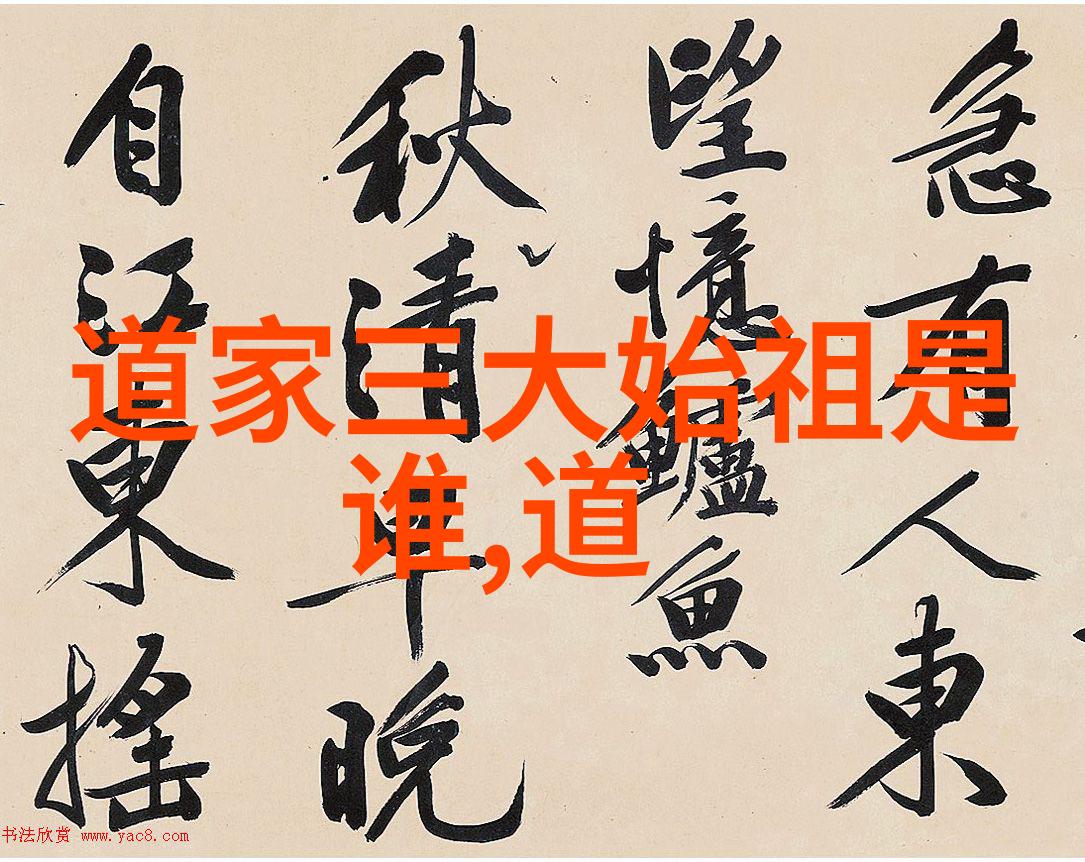 道家三大始祖是
谁,道
急有人東
望憶鱸魚
秋清早晚
自江東搖
书法欣赏 www.yac8.com